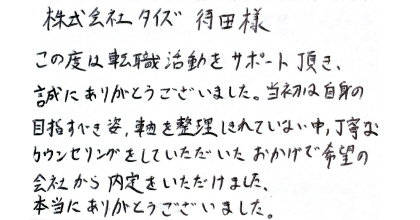 株式会社タイズ 待田様
この度は転職活動をサポート頂き、
誠にありがとうございました。当初は自身の
目指すべき姿、軸を整理しきれていない中、丁寧な
カウンセリングをしていただいたおかげで希望の
会社から内定をいただけました、
本当にありがとうございました。